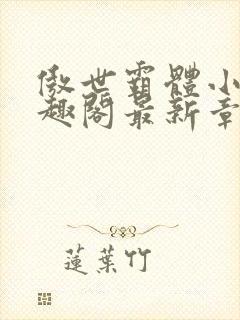 傲世霸體小
趣閣最新章
蓮葉竹